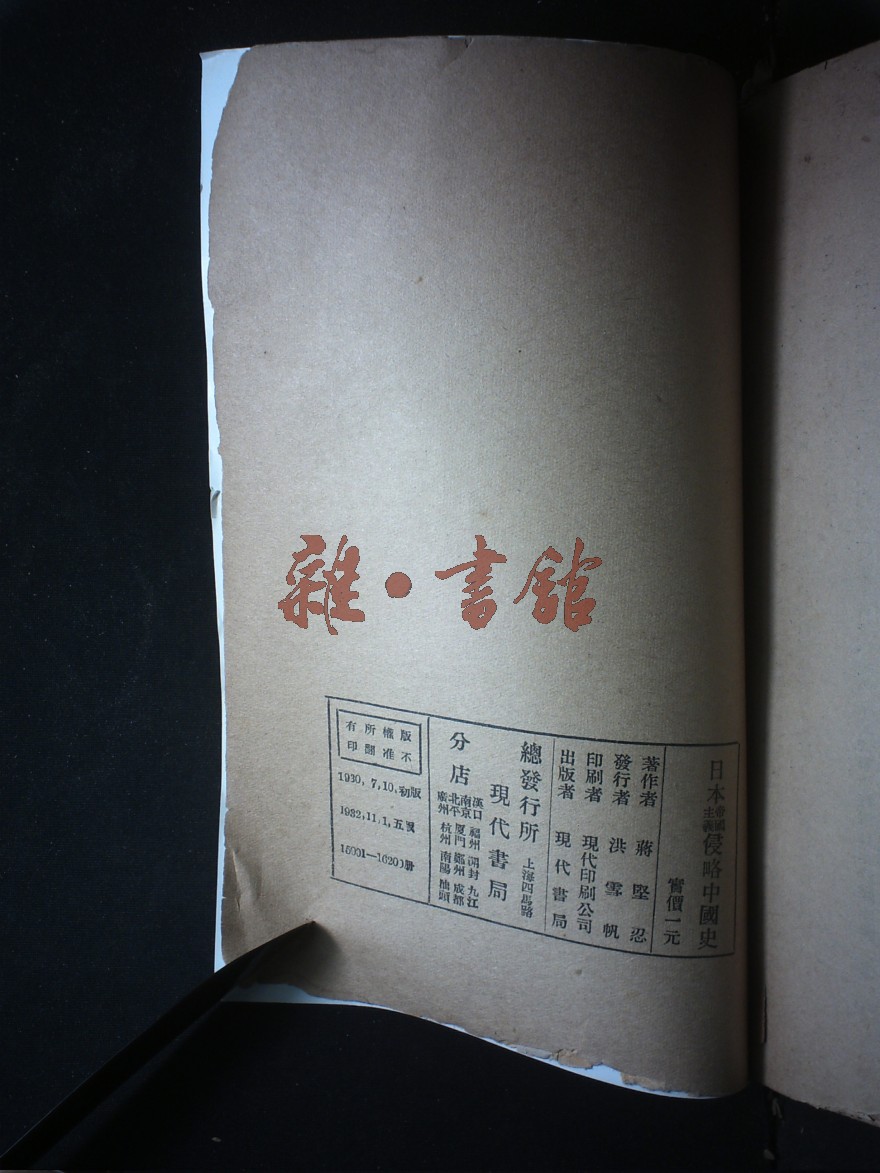 雜·書館
日本帝國主義侵略中國史
實價一元
著作者 蔣堅忍
發行者 洪雪帆
印刷者 現代印刷公司
出版者 現代書局
總發行所 上海四馬路
現代書局
分店
漢口 福州 開封 九江
南京 厦門 鄭州 成都
北平 杭州 南陽 汕頭
廣州
版權所有
不准翻印
1930, 7, 10, 初版
1932, 11, 1, 五版
15001—16200册